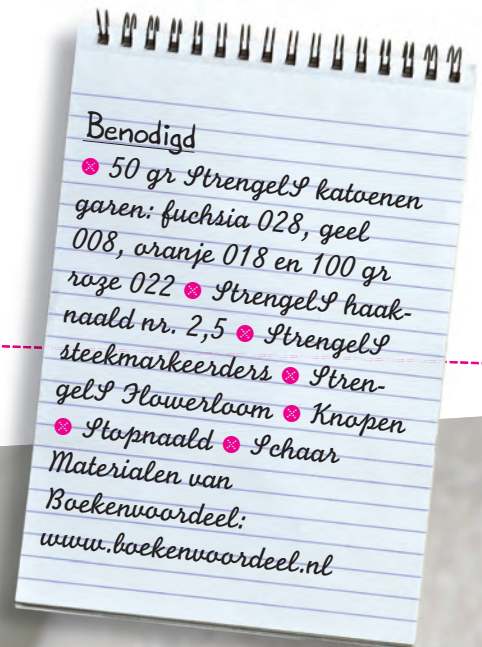 Benodigd
50 gr StrengelS katoenen
garen: fuchsia 028, geel
008, oranje 018 en 100 gr
roze 022 StrengelS haak-
naald nr. 2,5 StrengelS
steekmarkeerders Stren-
gelS Flowerloom Knopen
Stopnaald Schaar
Materialen van
Boekenvoordeel:
www.boekenvoordeel.nl